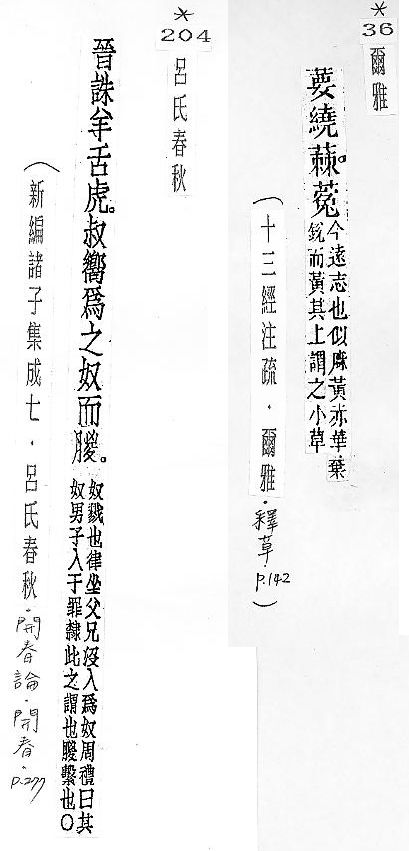 *
36
爾雅
葽繞蕀。蒬
今遠志也似麻黃赤華葉
銳而黃其上謂之小草
(十三經注疏.爾雅.釋草.p.142)
*
204
呂氏春秋
晉誅羊舌虎。叔嚮爲之奴而朡。
奴戮也律坐父兄没入爲奴周禮曰其
奴男子入于罪隸此之謂也朡繫也○
(新編諸子集成七.呂氏春秋.開春論.開春.p.277